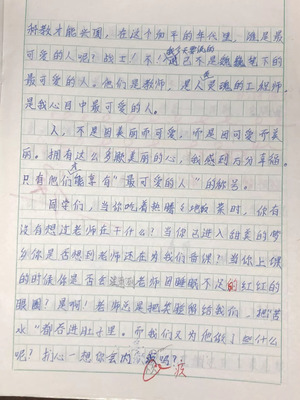 桥教才能兴国,在这个和平的年代里,谁是最
可爱的人呢?战士!不!他已不是魏巍笔下的
最可爱的人。他们是教师,是人类灵魂的工程师。
是我心目中最可爱的人。
人,不是因美丽而可爱,而是因可爱而美
丽。拥有这么多颗美丽的心,我感到万分幸福。
只有他们能享有"最可爱的人"的称号。
同学们,当你吃着热腾腾的饭菜时,你有
没有想过老师在干什么?当你已进入甜美的梦
乡你是否想到老师还在为我们备课?当你上课
的时候你是否去注意到老师因睡眠不足的红红的
眼圈?是啊!老师总是把笑脸留给我们,把苦
水"都吞进肚子里。而我们又为他做了些什么
呢?扪心一想你去内疚吗?